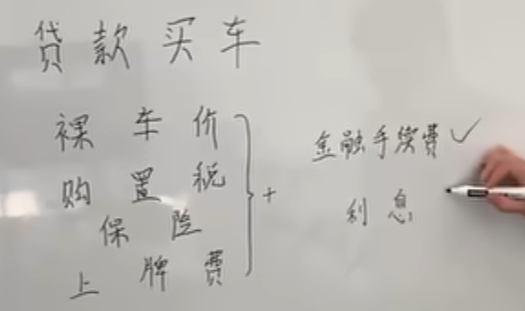 贷款买车
裸车价
购置税
保险
上牌费
} +
金融手续费✓
利息